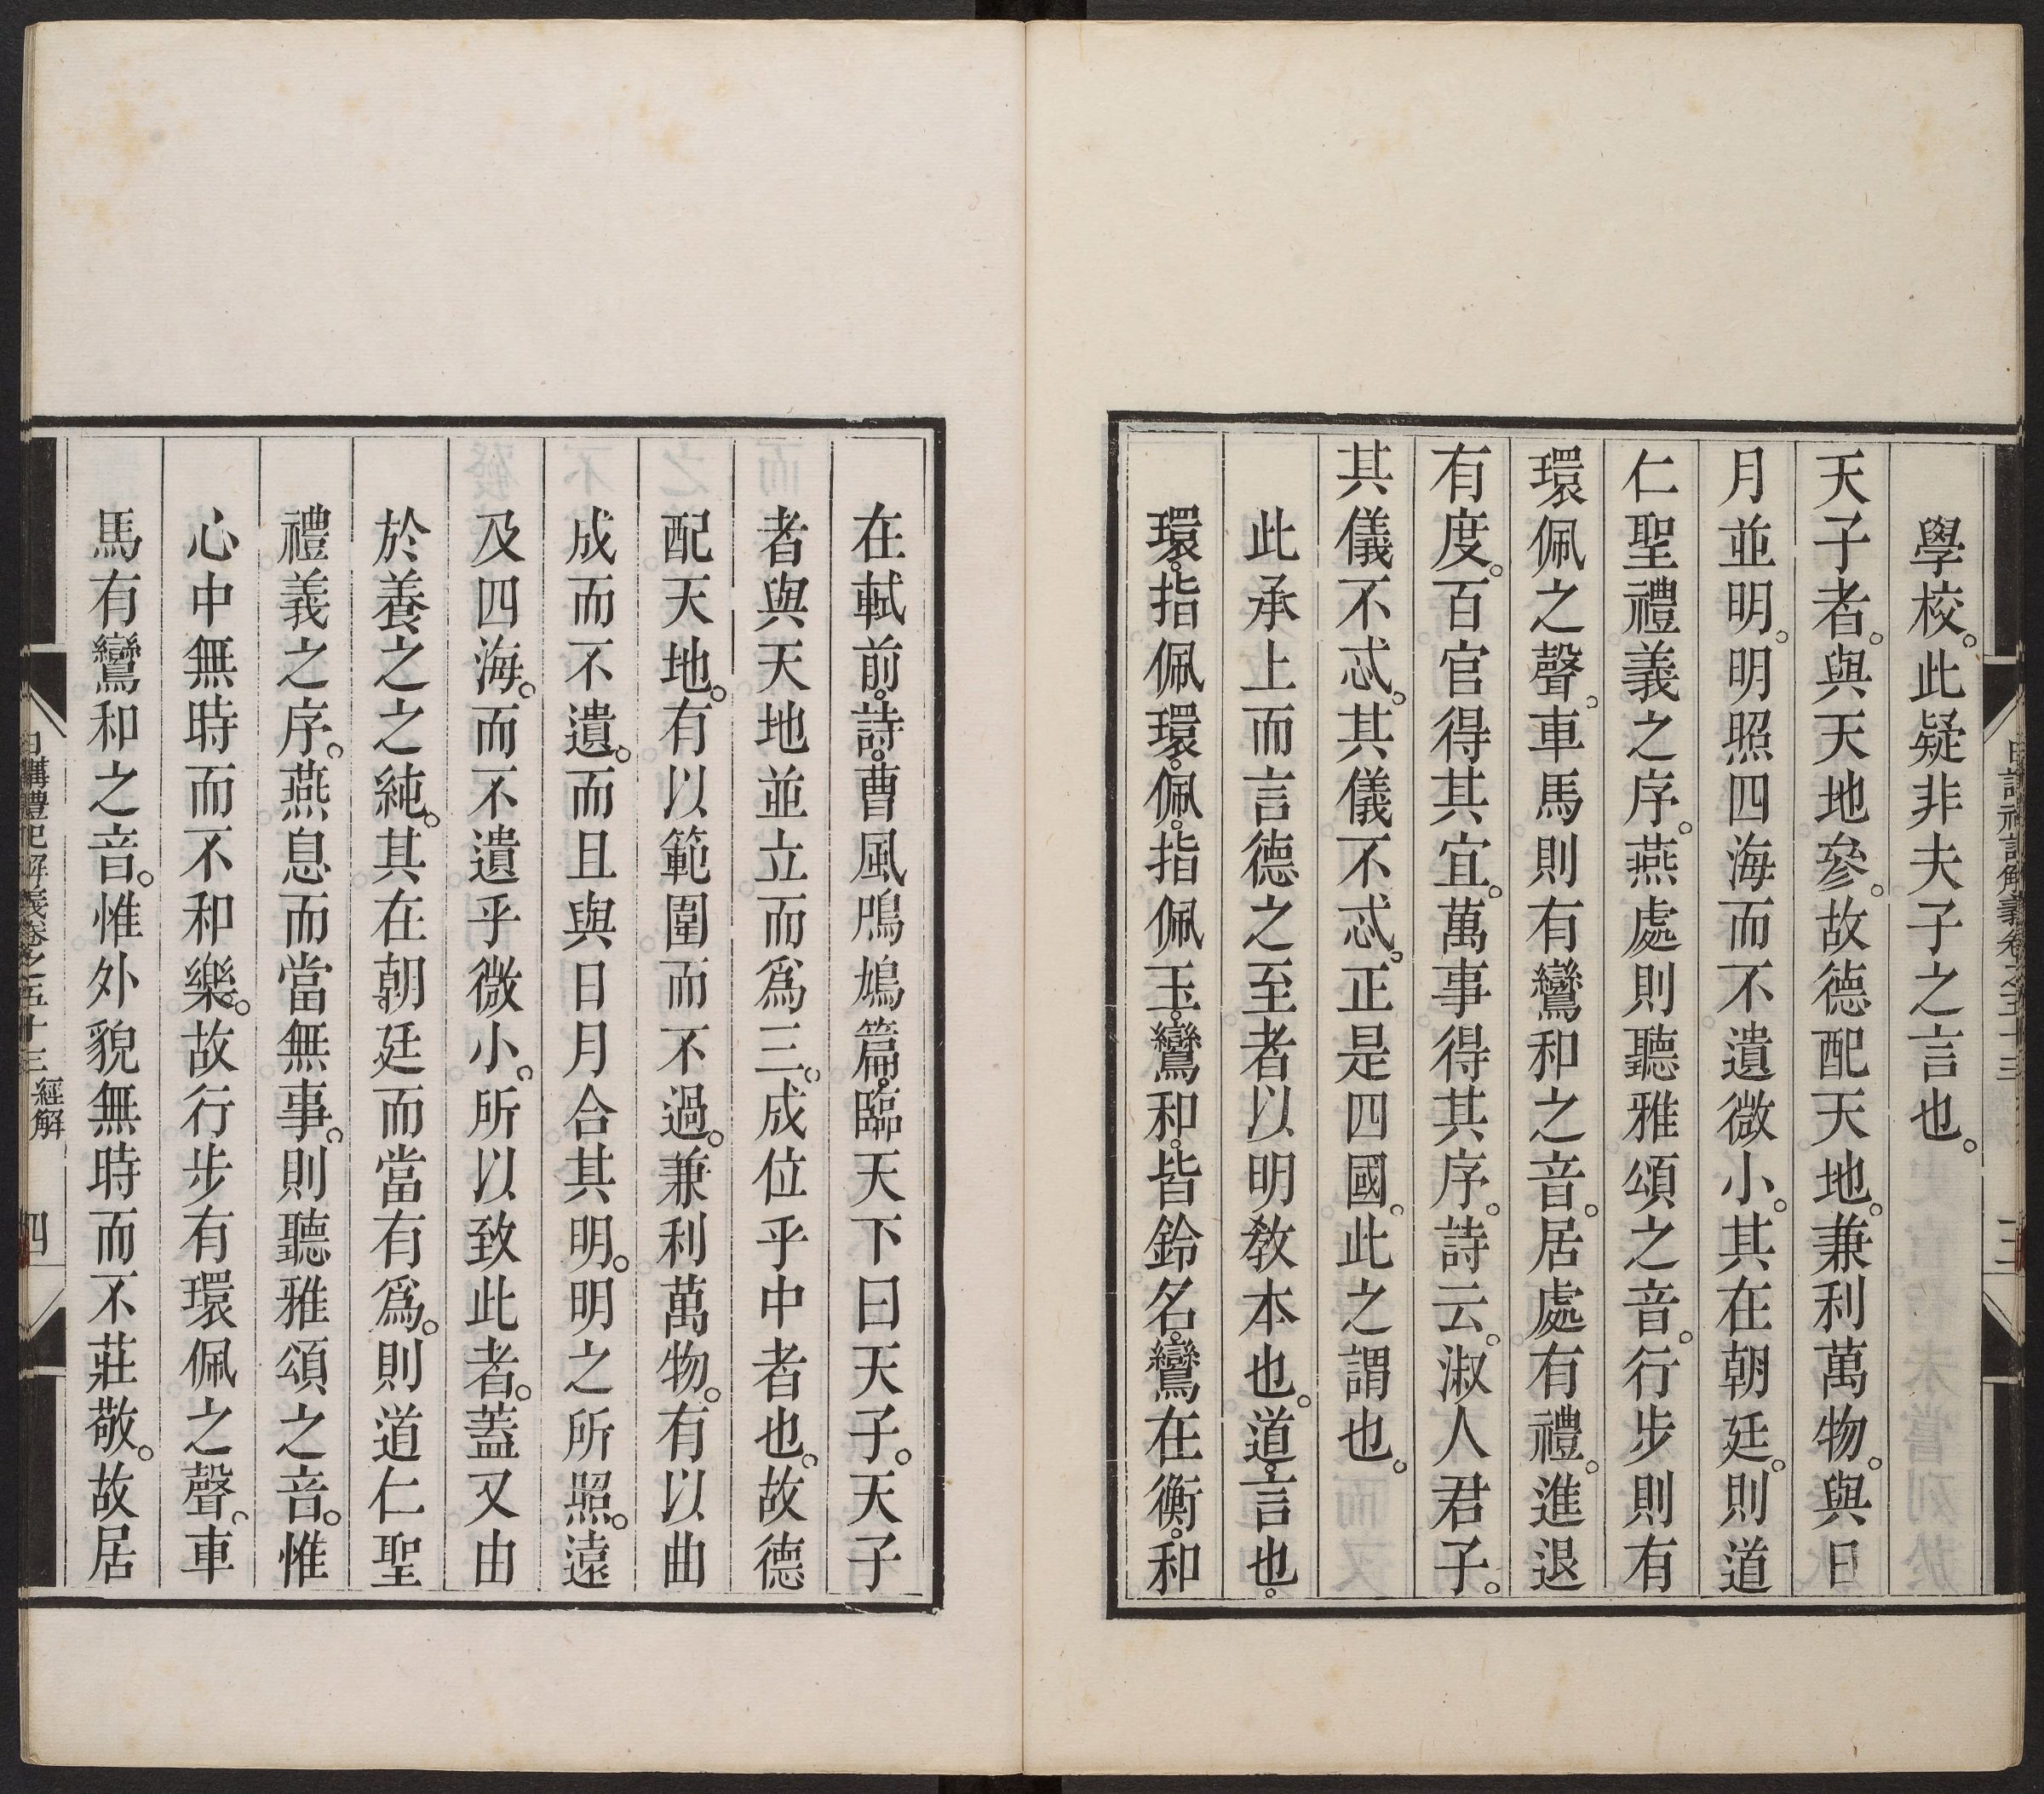 學校。此疑非夫子之言也。
天子者。與天地參。故德配天地。兼利萬物。與日
月並明。明照四海而不遺微小。其在朝廷。則道
仁聖禮義之序。燕處則聽雅頌之音。行步則有
環佩之聲。車馬則有鸞和之音。居處有禮。進退
有度。百官得其宜。萬事得其序。詩云。淑人君子。
其儀不忒。其儀不忒。正是四國。此之謂也。
此承上而言德之至者以明敎本也。道。言也。
環。指佩環。佩。指佩玉。鸞和。皆鈴名。鸞在衡。和
在軾前。詩。曹風鳲鳩篇。臨天下曰天子。天子
者與天地並立而爲三。成位乎中者也。故德
配天地。有以範圍而不過。兼利萬物。有以曲
成而不遺。而且與日月合其明。明之所照。遠
及四海。而不遺乎微小。所以致此者。蓋又由
於養之之純。其在朝廷而當有爲。則道仁聖
禮義之序。燕息而當無事。則聽雅頌之音。惟
心中無時而不和樂。故行步有環佩之聲。車
馬有鸞和之音。惟外貌無時而不莊敬。故居
日講禮記解義卷之五十三 經解 四